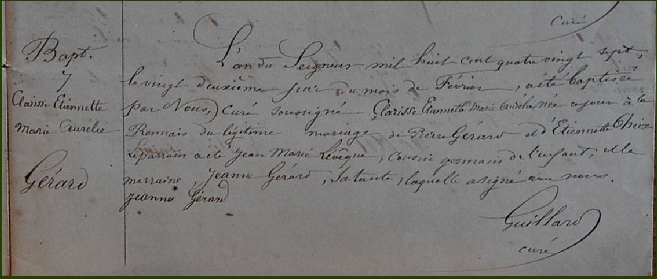 Curé
Bapt.
7
Clarisse Etiennette
Marie Aurélie
Gérard
L'an du Seigneur mil huit cent quatre vingt sept,
le vingt deuxième jour du mois de Février, a été baptisée
par Nous, Curé soussigné Clarisse Etiennette Marie Aurélie née ce jour à la
du légitime mariage de Pierre Gérard et d'Etiennette
le parrain a été Jean Marie cousin germain de l'enfant; et la
marraine, Jeanne Gérard, sa tante, laquelle a signé avec nous.
jeanne Gérard
Guillard
curé